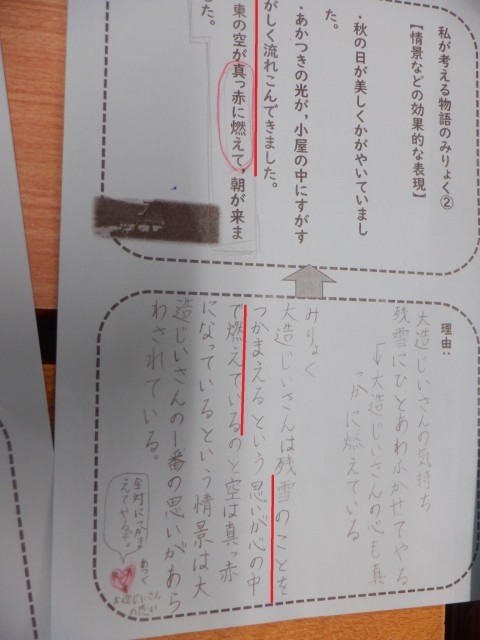 私が考える物語のみりょく②
【情景などの効果的な表現】
・秋の日が美しくかがやいていまし
た。
・あかつきの光が，小屋の中にすがす
がしく流れこんできました。
東の空が真っ赤に燃えて，朝が来ま
した。
理由：
大造じいさんの気持ち
残雪にひとあわふかせてやる
↓大造じいさんの心も真
っかに燃えている
みりょく
大造じいさんは残雪のことを
つかまえるという思いが心の中
で燃えているのと空は真っ赤
になっているという情景は大
造じいさんの一番の思いがあら
わされている。
絶対につかま
えてやるぞ
大造じいさん
の思い